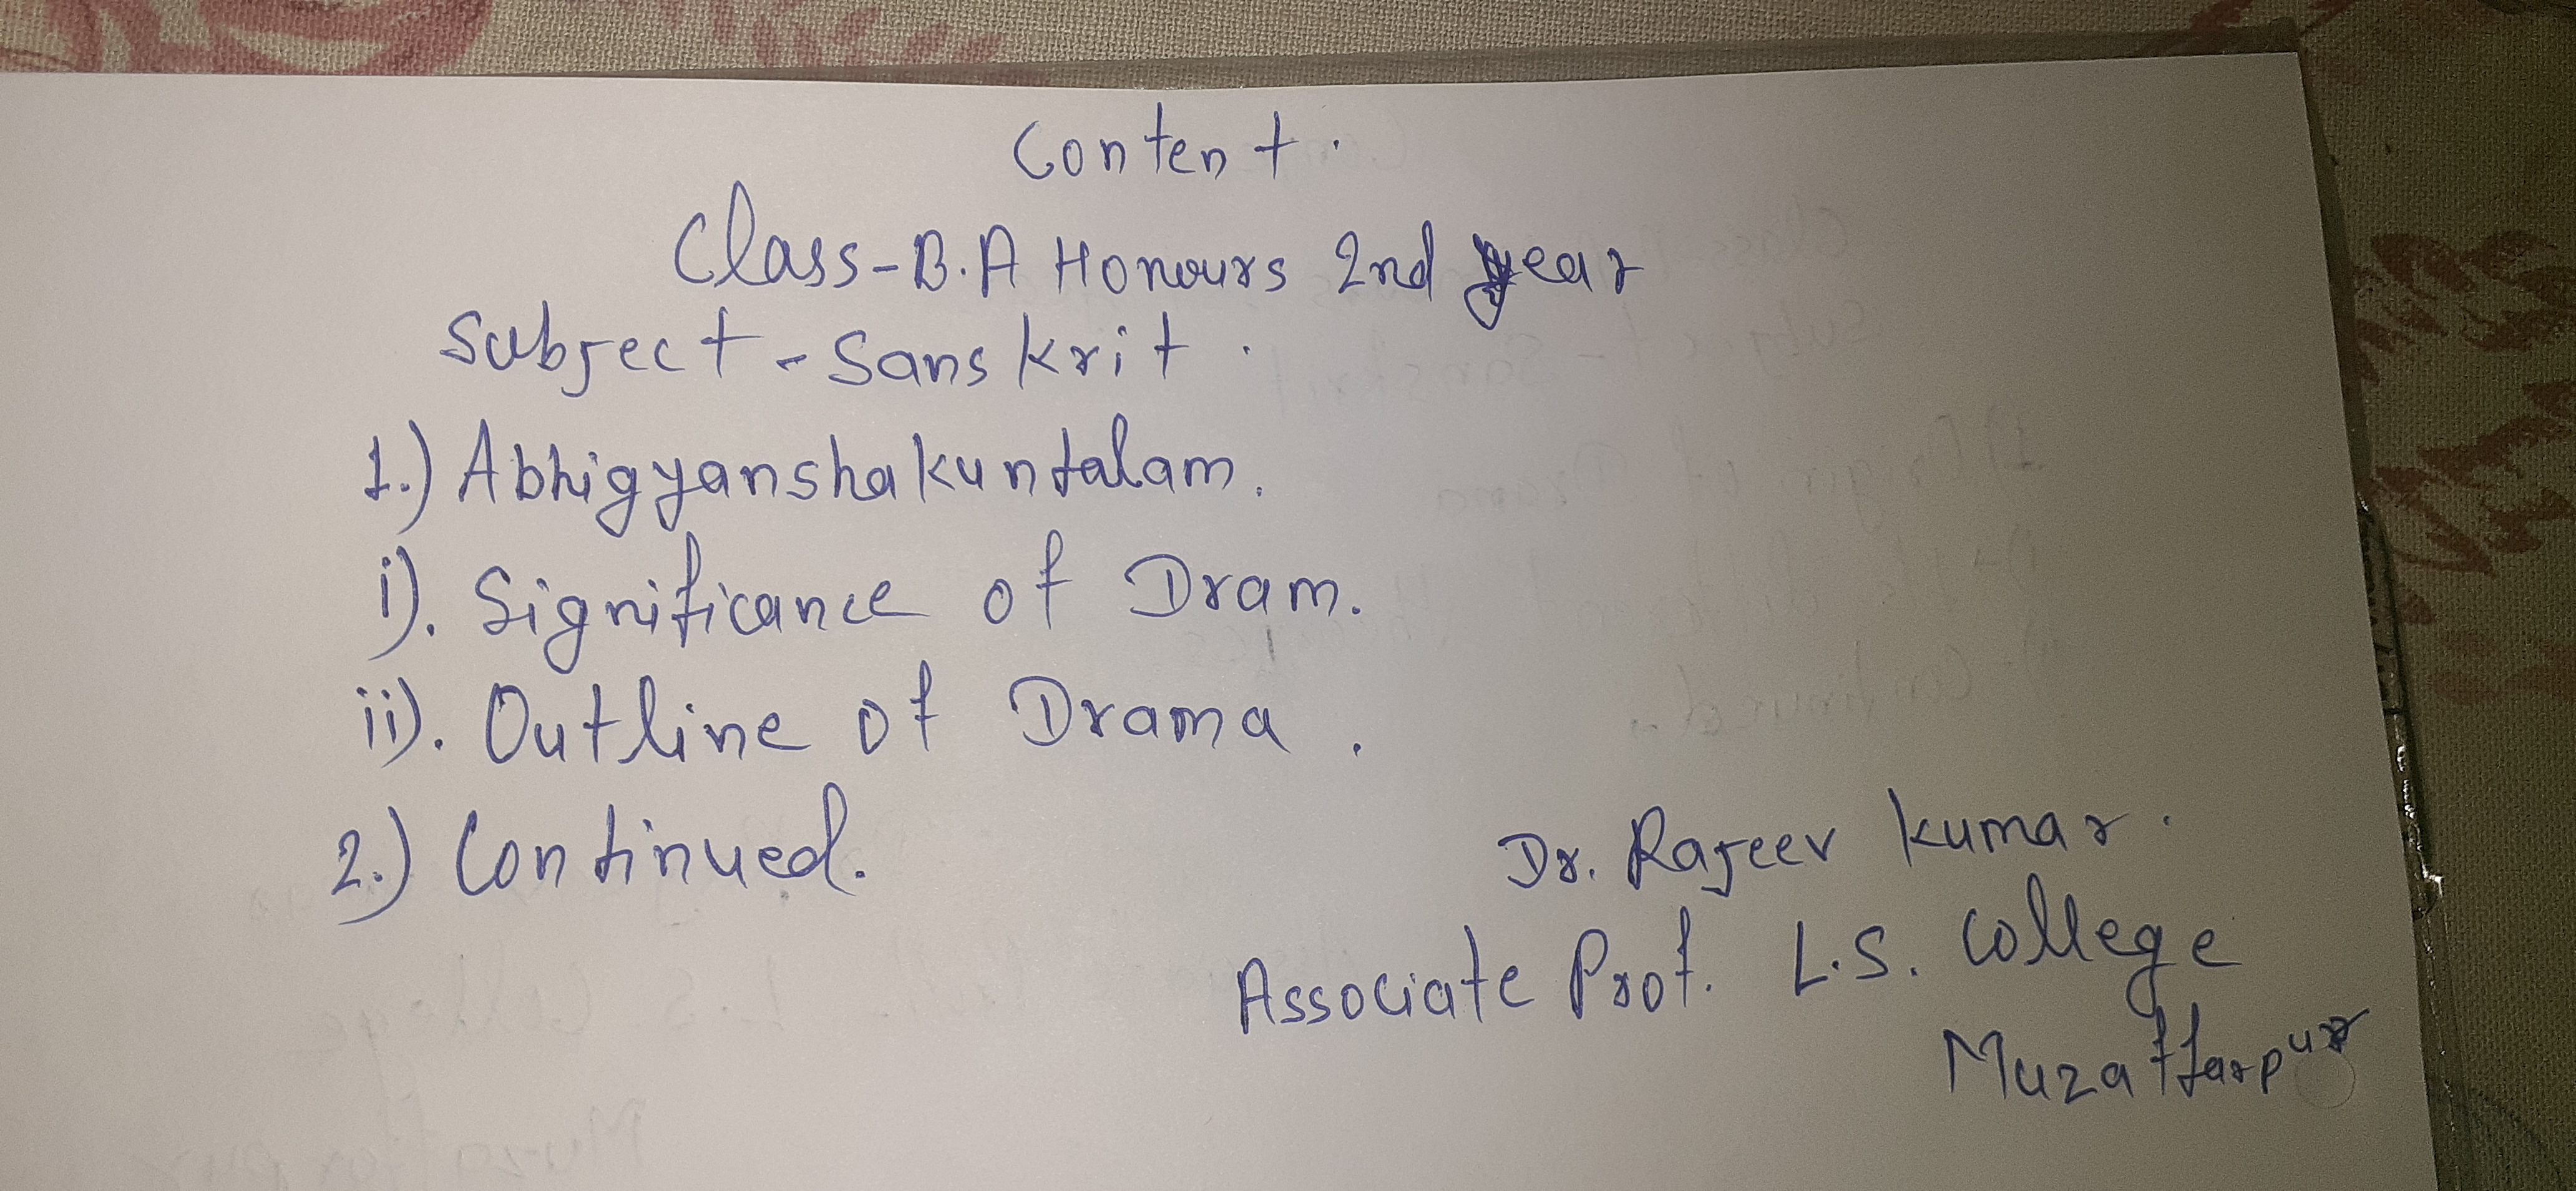 Content.
Class-B.A Honours 2nd year
Subject-Sanskrit.
1.) Abhigyanshakuntalam.
i). Significance of Dram.
ii). Outline of Drama.
2.) Continued.
Dr. Rajeev Kumar.
Associate Prof. L.S. College
Muzaffarpur